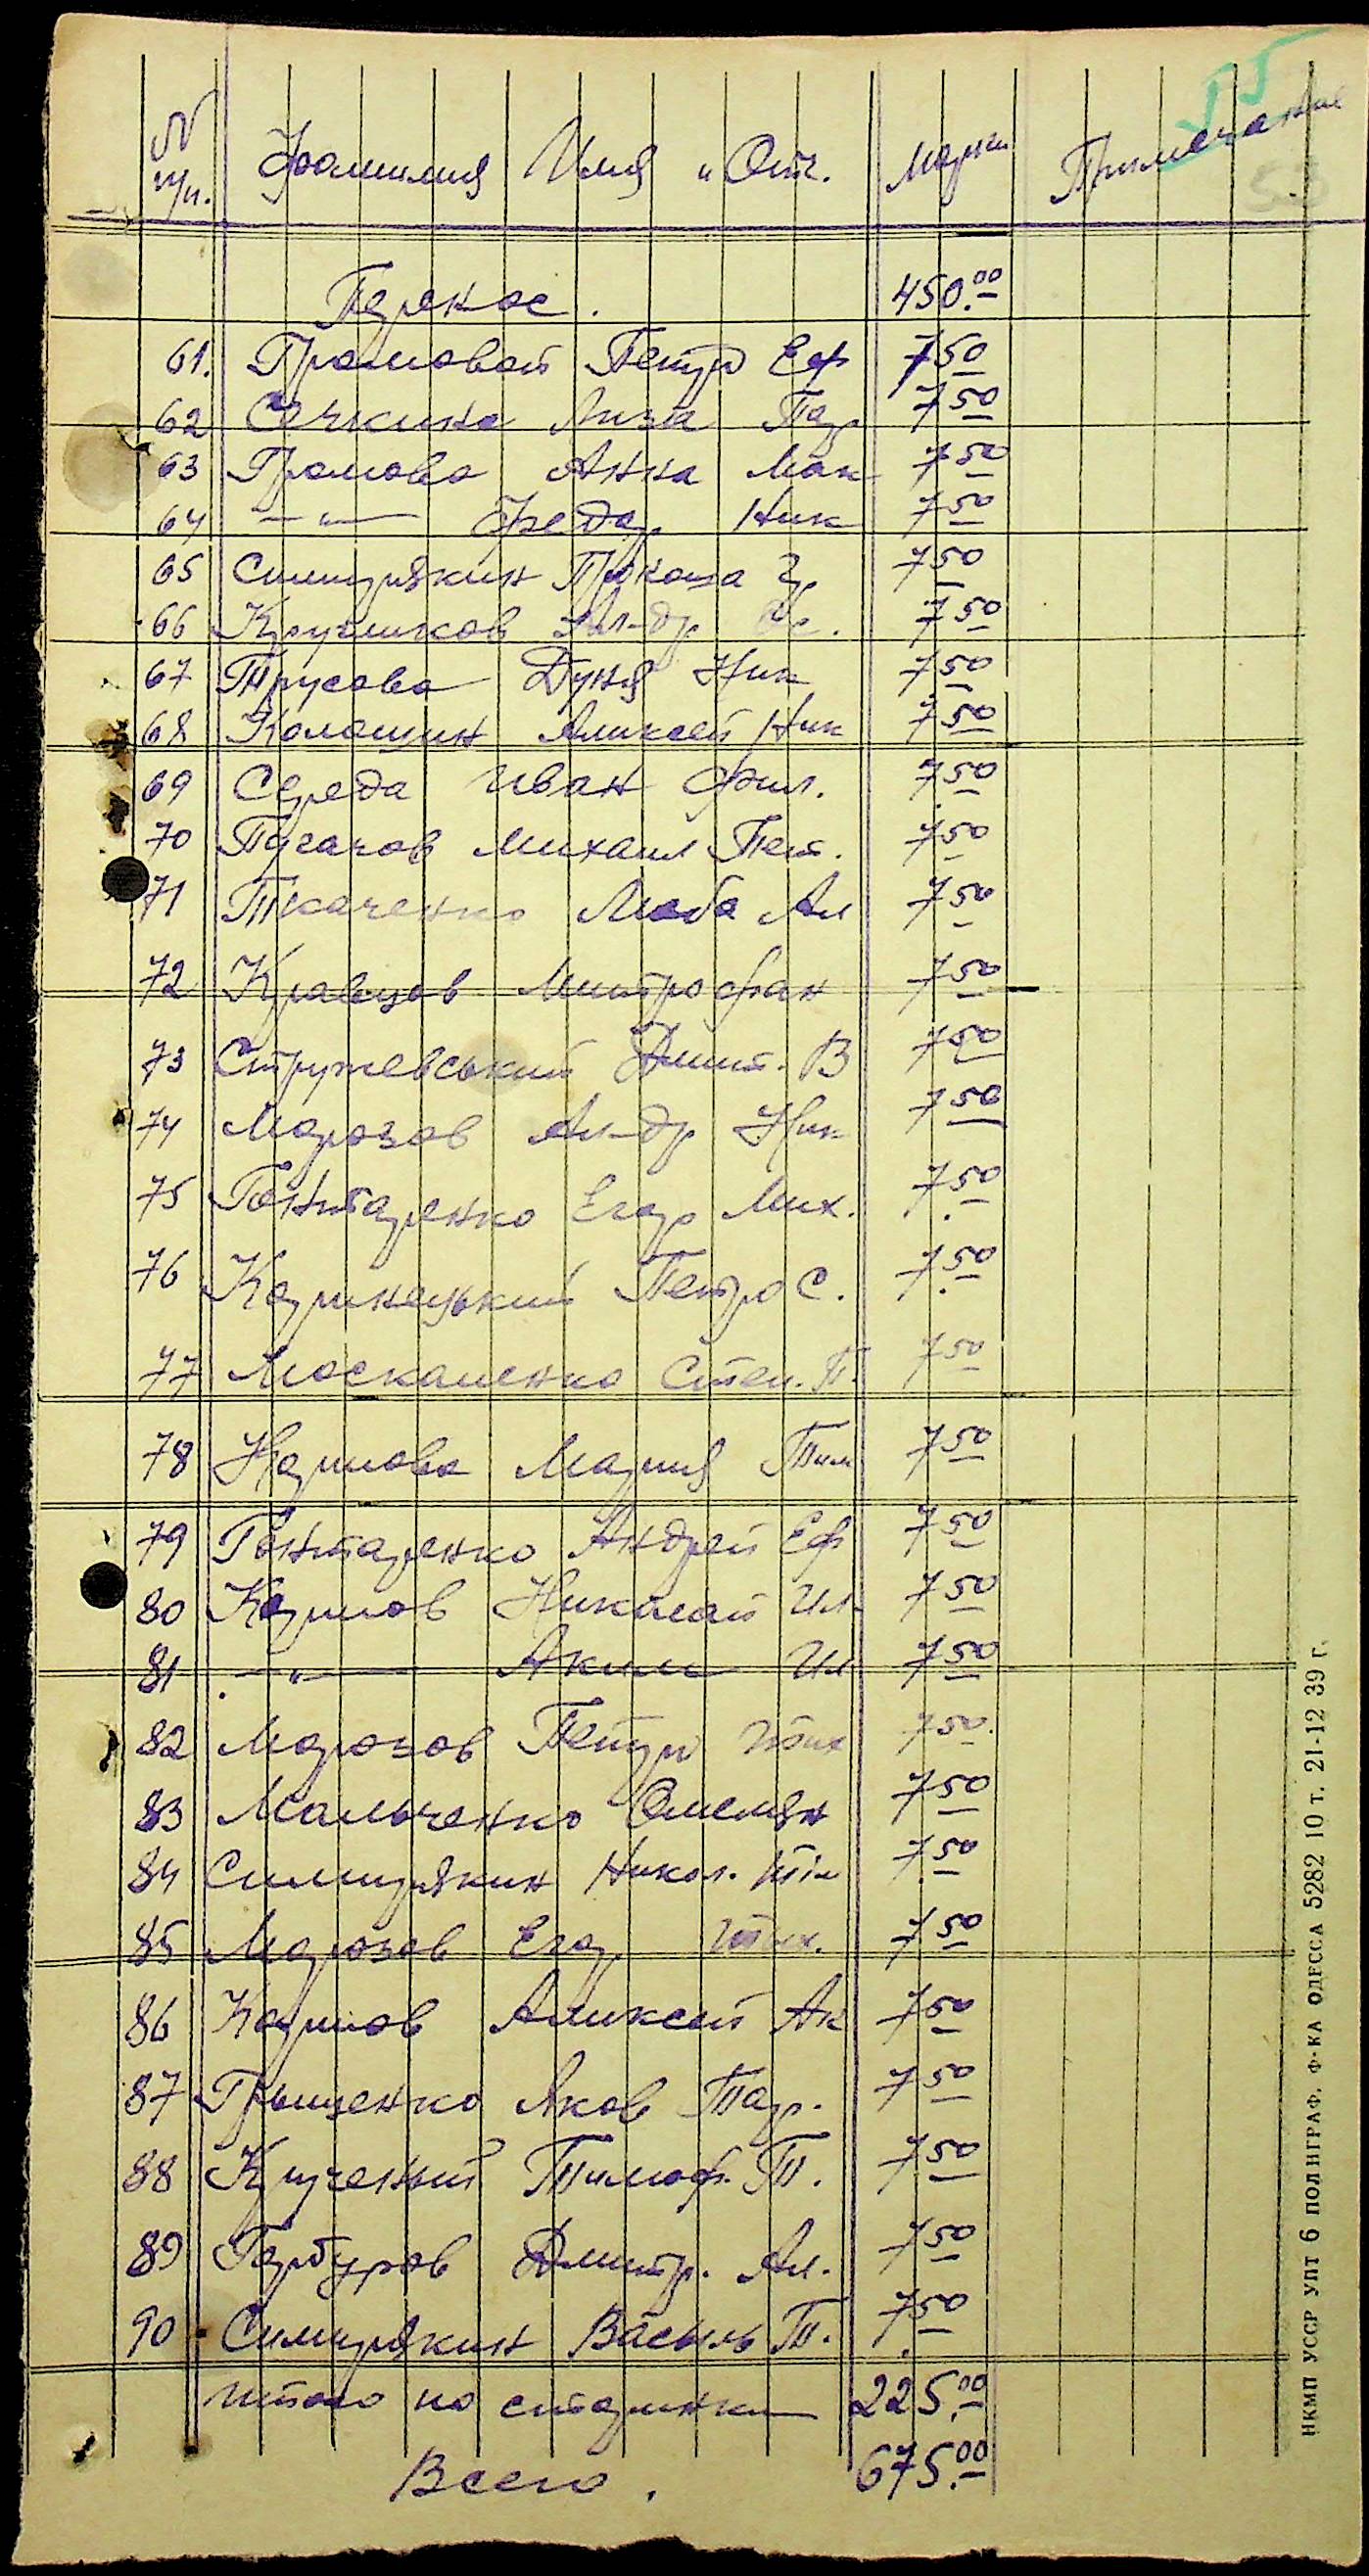 55
№ п/п. Фамилия Имя и Отч. Марки Примечание
Перенос. 450.00
61. Громовой Петро Еф 7 50
62 Сечкина Лиза Пар 7 50
63 Громова Анна Мак 7 50
64 —"— Федор Ник 7 50
65 Симирякин Прокоша Гр 7 50
66 Кругликов Ал-др 7 50
67 Трусова Дуня Ник 7 50
68 Калашник Алексей Ник 7 50
69 Середа Иван Фил. 7 50
70 Пугачов Михаил Пет. 7 50
71 Ткаченко Люба Ал 7 50
72 Кравцов Митрофан 7 50
73 Стружевський Дмит. В 7 50
74 Морозов Ал-др Ник 7 50
75 Гонтаренко Егор Мих. 7.50
76 Керинецький Петро С. 7.50
77 Москаленко Степ. П. 7 50
78 Каримова Мария Тим 7 50
79 Гонтаренко Андрей Еф 7 50
80 Каримов Николай Ил 7 50
81 —"— Аким Ил 7 50
82 Морозов Петро Тих 7 50.
83 Мальченко Омелян 7 50
84 Симирякин Никол. Тім 7.50
85 Морозов Егор Тих. 7 50
86 Каримов Алексей Ак 7 50
87 Грыценко Яков Тар. 7 50
88 Крученый Тимоф. Т. 7 50
89 Гарбузов Дмитр. Ал. 7 50
90. Симирякин Васыль Т. 7.50
Итого по старинки 225.00
Всего. 675.00
НКМП УССР УПТ 6 ПОЛИГРАФ. Ф-КА ОДЕССА 5282 10 т. 21-12 39 г.